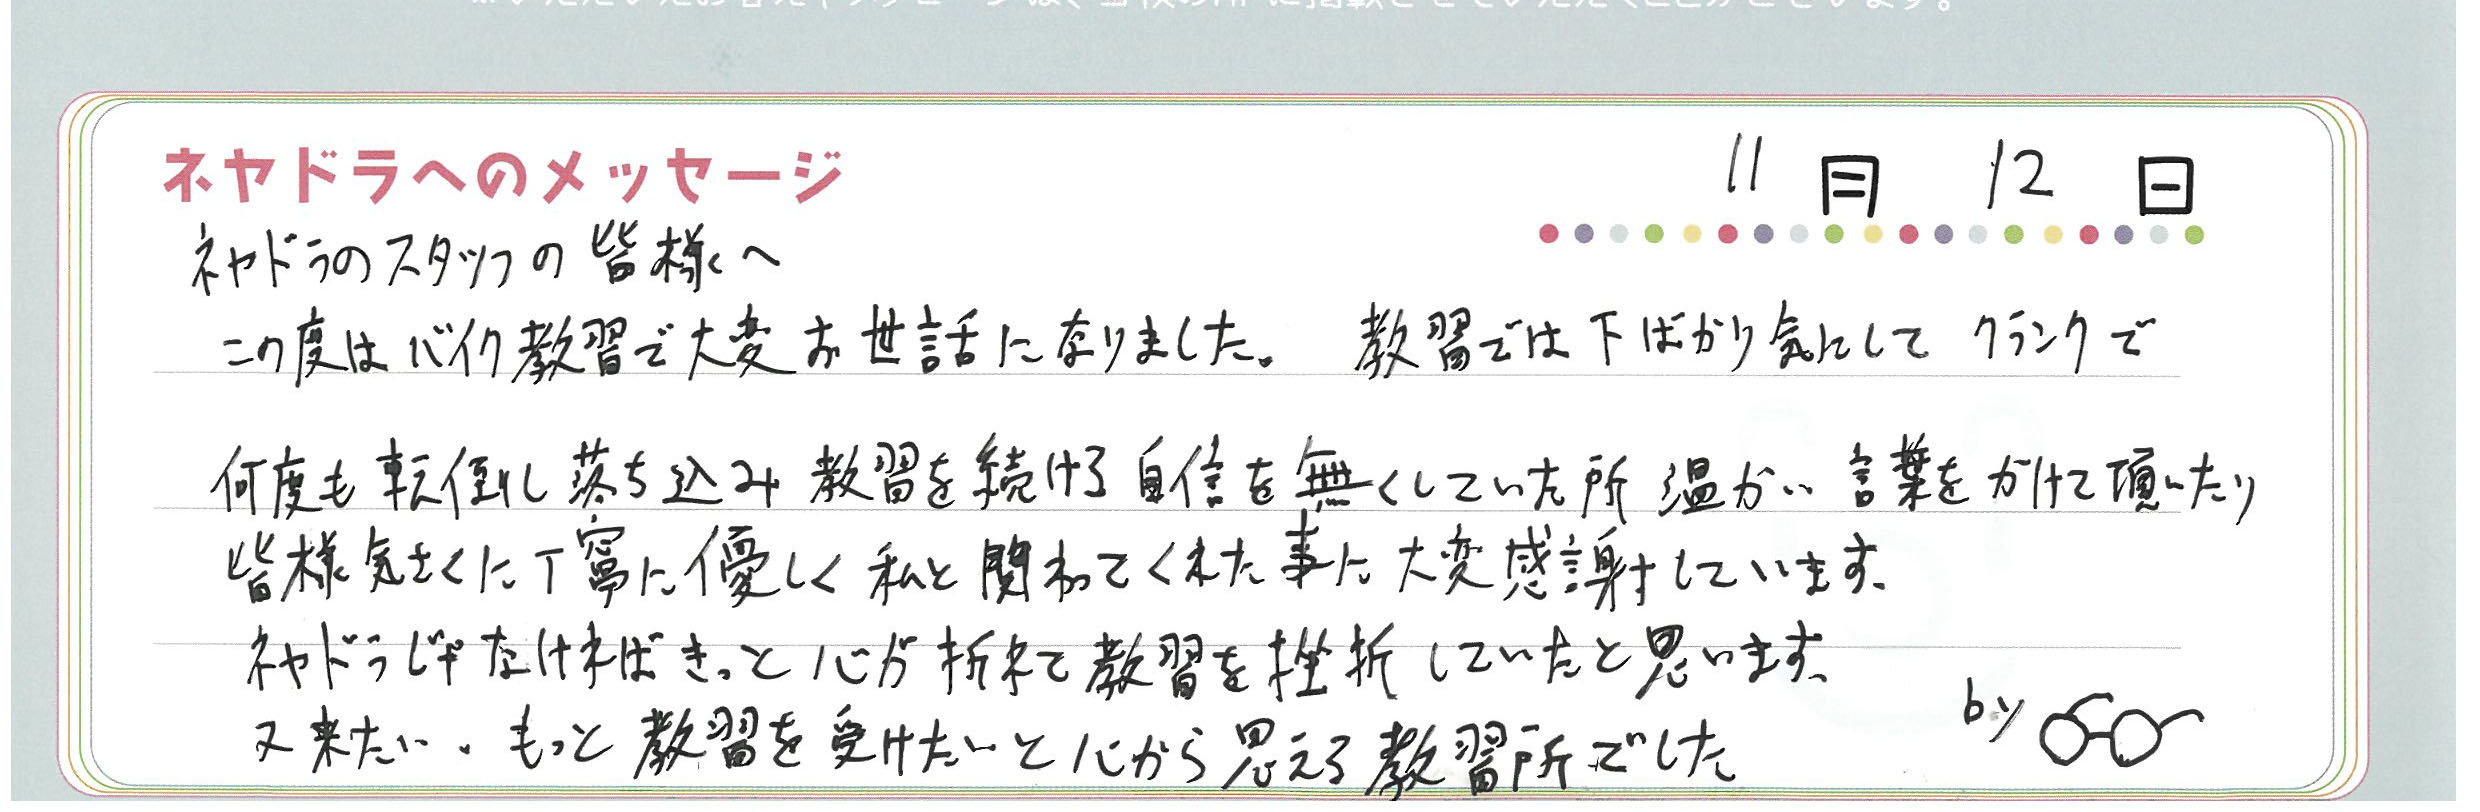 ネヤドラへのメッセージ
11月 12日
ネヤドラのスタッフの皆様へ
この度はバイク教習で大変お世話になりました。 教習では下ばかり気にして クランクで
何度も転倒し落ち込み 教習を続ける自信を無くしていた所 温かい言葉をかけて頂いたり
皆様気さくに丁寧に優しく私と関わってくれた事に大変感謝しています。
ネヤドラじゃなければきっと心が折れて教習を挫折していたと思います。
又来たい、もっと教習を受けたいと心から思える教習所でした
by